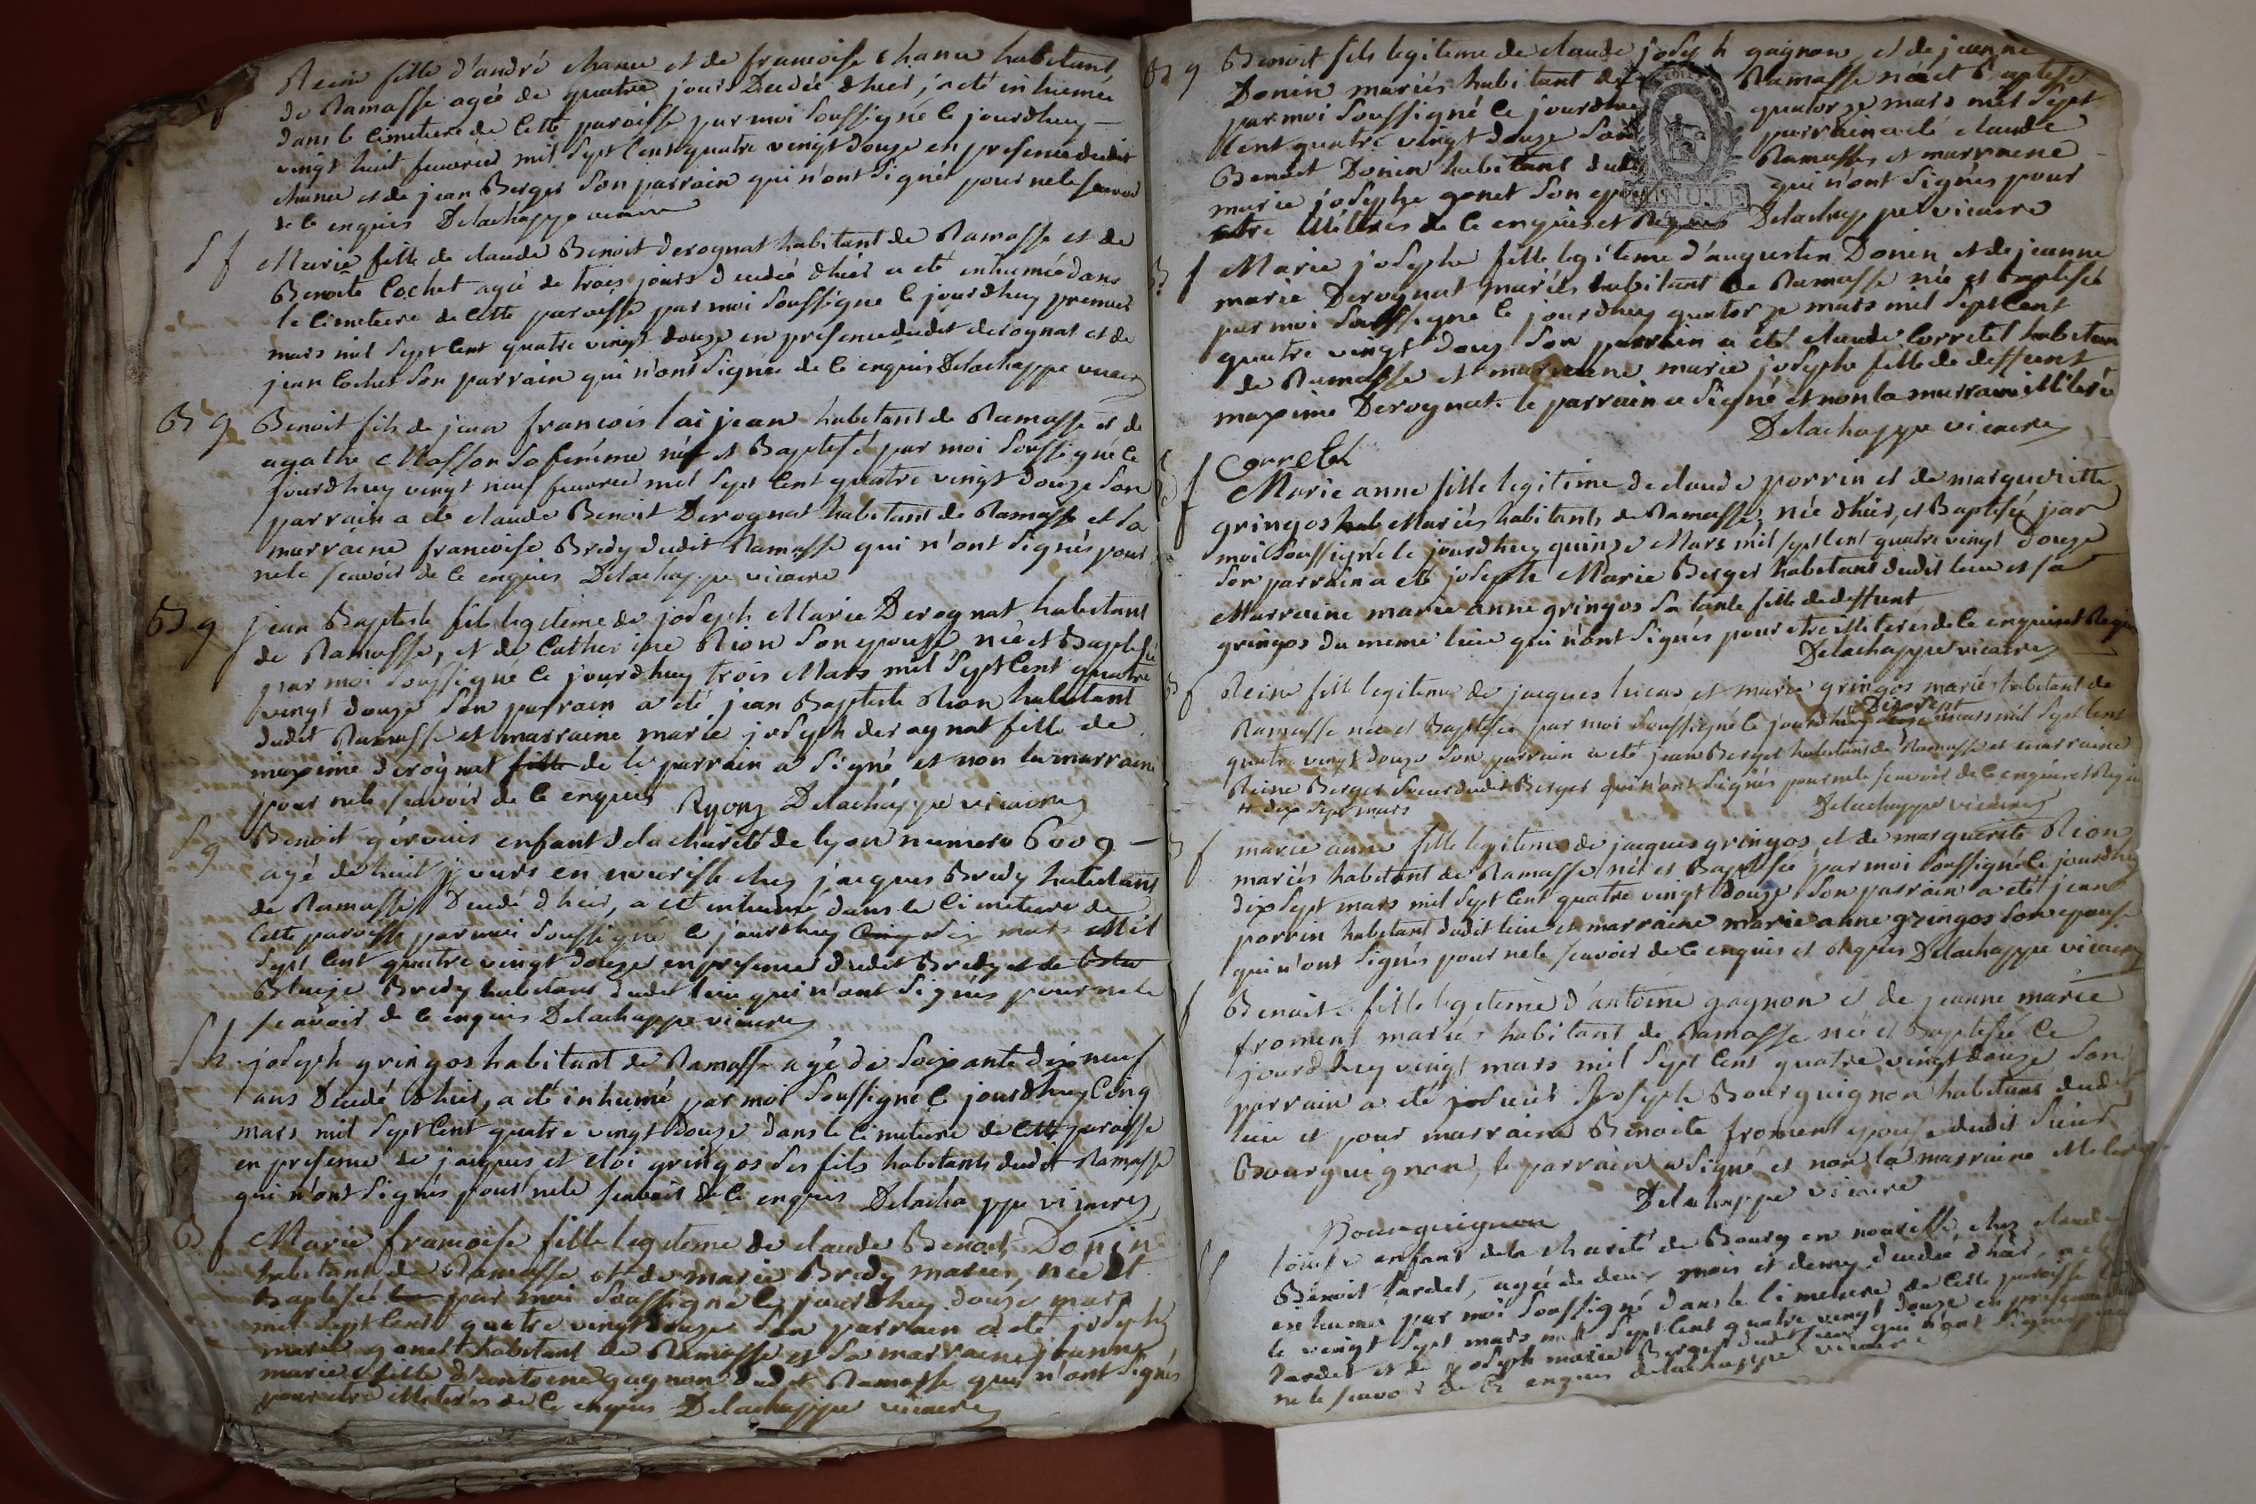 Reine fille d'andré chanu et de francoise chanu habitant
de Ramasse agée de quatre jours Decedée dhier, a eté inhumée
dans le Cimetiere de Cette paroisse par moi soussigné le jourdhuy
vingt huit fevrier mil sept Cent quatre vingt douze en presence dudit
chanu et de jean Berger son parrain qui n'ont signé pour ne le scavoir
de ce enquis Delachappe vicaire
S f
Marie fille de claude Benoit derognat habitant de Ramasse et de
Benoite Cochet agée de trois jours decedée dhier a eté inhumée dans
le Cimetiere de Cette paroisse par moi soussigné le jourdhuy premier
mars mil sept Cent quatre vingt douze en presence dudit derognat et de
jean Cochet son parrain qui n'ont signés de ce enquis Delachappe vicaire
B g
Benoit fils de jean francois lai jean habitant de Ramasse et de
agathe Masson sa femme né et Baptisé par moi soussigné le
jourdhuy vingt neuf fevrier mil sept Cent quatre vingt douze son
parrain a eté claude Benoit Derognat habitant de Ramasse et la
marraine francoise Bredy dudit Ramasse qui n'ont signés pour
ne le scavoir de ce enquis Delachappe vicaire
B g
jean Baptiste fils legitime de joseph Marie Derognat habitant
de Ramasse, et de Catherine Rion son epouse née et Baptisé
par moi soussigné le jourdhuy trois Mars mil sept Cent quatre
vingt douze son parrain a été jean Baptiste Rion habitant
dudit Ramasse et marraine marie joseph derognat fille de
maxime derognat fille de le parrain a signé et non la marraine
pour ne le scavoir de ce enquis Ryon Delachappe vicaire
S g
Benoit gervais enfant de la charité de lyon numero 6009
agé de huit jours en nourisse chez jacques Bredy habitant
de Ramasse Decedé dhier, a eté inhumé dans le Cimetiere de
Cette paroisse par moi soussigné le jourdhuy Cinq six mars Mil
sept Cent quatre vingt douze en presence dudit Bredy et de
Blaize Bredy habitant dudit lieu qui n'ont signés pour ne le
scavoir de ce enquis Delachappe vicaire
S h
joseph gringos habitant de Ramasse agé de soixante dix neuf
ans Decedé dhier, a eté inhumé par moi soussigné le jourdhuy Cinq
mars mil sept Cent quatre vingt douze dans le Cimetiere de Cette paroisse
en presence de jacques et eloi gringos ses fils habitants dudit Ramasse
qui n'ont signés pour ne le scavoir de ce enquis Delachappe vicaire
B f
Marie francoise fille legitime de claude Benoit Donin
habitant de Ramasse et de marie Bredy mariés, née et
Baptisée par moi soussigné le jourdhuy douze mars
mil sept Cent quatre vingt douze son parrain a eté joseph
marie gonet habitant de Ramasse et sa marraine jeanne
marie fille d'antoine gagnon dudit Ramasse qui n'ont signés
pour etre illiterés de ce enquis Delachappe vicaire
B g
Benoit fils legitime de claude joseph gagnon et de jeanne
Donin mariés habitant de Ramasse né et Baptisé
par moi soussigné le jourdhuy quatorze mars mil sept
Cent quatre vingt douze son parrain a eté claude
Benoit Donin habitant dudit Ramasse et marraine
marie josephe gonet son epouse qui n'ont signés pour
etre illiterés de ce enquis et Requis Delachappe vicaire
MINUTE
B f
Marie josephe fille legitime d'augustin Donin et de jeanne
marie Derognat mariés habitant de Ramasse née et Baptisée
par moi soussigné le jourdhuy quatorze mars mil sept Cent
quatre vingt douz son parrain a eté claude Corretel habitant
de Ramasse et marraine marie josephe fille de deffunt
maxime Derognat. le parrain a signé et non la marraine illiterée
Delachappe vicaire
f
Marie anne fille legitime de claude porrin et de margueritte
gringos hab Mariés habitants de Ramasse, née dhier, et Baptisée par
moi soussigné le jourdhuy quinze Mars mil sept Cent quatre vingt douze
son parrain a eté josephe Marie Berger habitant dudit lieu et sa
Marraine marie anne gringos sa tante fille de deffunt
gringos du meme lieu qui n'ont signés pour etre illiterés de ce enquis et Requis
Delachappe vicaire
B f
Reine fille legitime de jacques lucas et marie gringos mariés habitant de
Ramasse née et Baptisée par moi soussigné le jourdhuy dix sept mars mil sept Cent
quatre vingt douze son parrain a eté jean Berger habitant de Ramasse et marraine
Reine Berger soeur dudit Berger qui n'ont signés pour ne le scavoir de ce enquis et Requis
dix sept mars
Delachappe vicaire
B f
marie anne fille legitime de jacques gringos et de marguerite Rion
mariés habitant de Ramasse née et Baptisée par moi soussigné le jourdhuy
dix sept mars mil sept Cent quatre vingt douze son parrain a eté jean
porrin habitant dudit lieu et marraine marie anne gringos son epouse
qui n'ont signés pour ne le scavoir de ce enquis et Requis Delachappe vicaire
f
Benoite fille legitime d'antoine gagnon et de jeanne marie
froment mariés habitant de Ramasse née et Baptisée le
jourdhuy vingt mars mil sept Cent quatre vingt douze son
parrain a eté joseph Bourguignon habitant dudit
lieu et pour marraine Benoite froment epouse dudit sieur
Bourguignon, le parrain a signé et non la marraine illiterée
Delachappe vicaire
Bourguignon
enfant de la charité de Bourg en nourisse chez claude
Benoit tardet, agée de deux mois et demy decedée dhier, a eté
inhumé par moi soussigné dans le Cimetiere de Cette paroisse
le vingt sept mars mil sept Cent quatre vingt douze en presence dudit
tardet et de joseph marie Berger dudit lieu qui n'ont signés pour
ne le scavoir de ce enquis delachappe vicaire